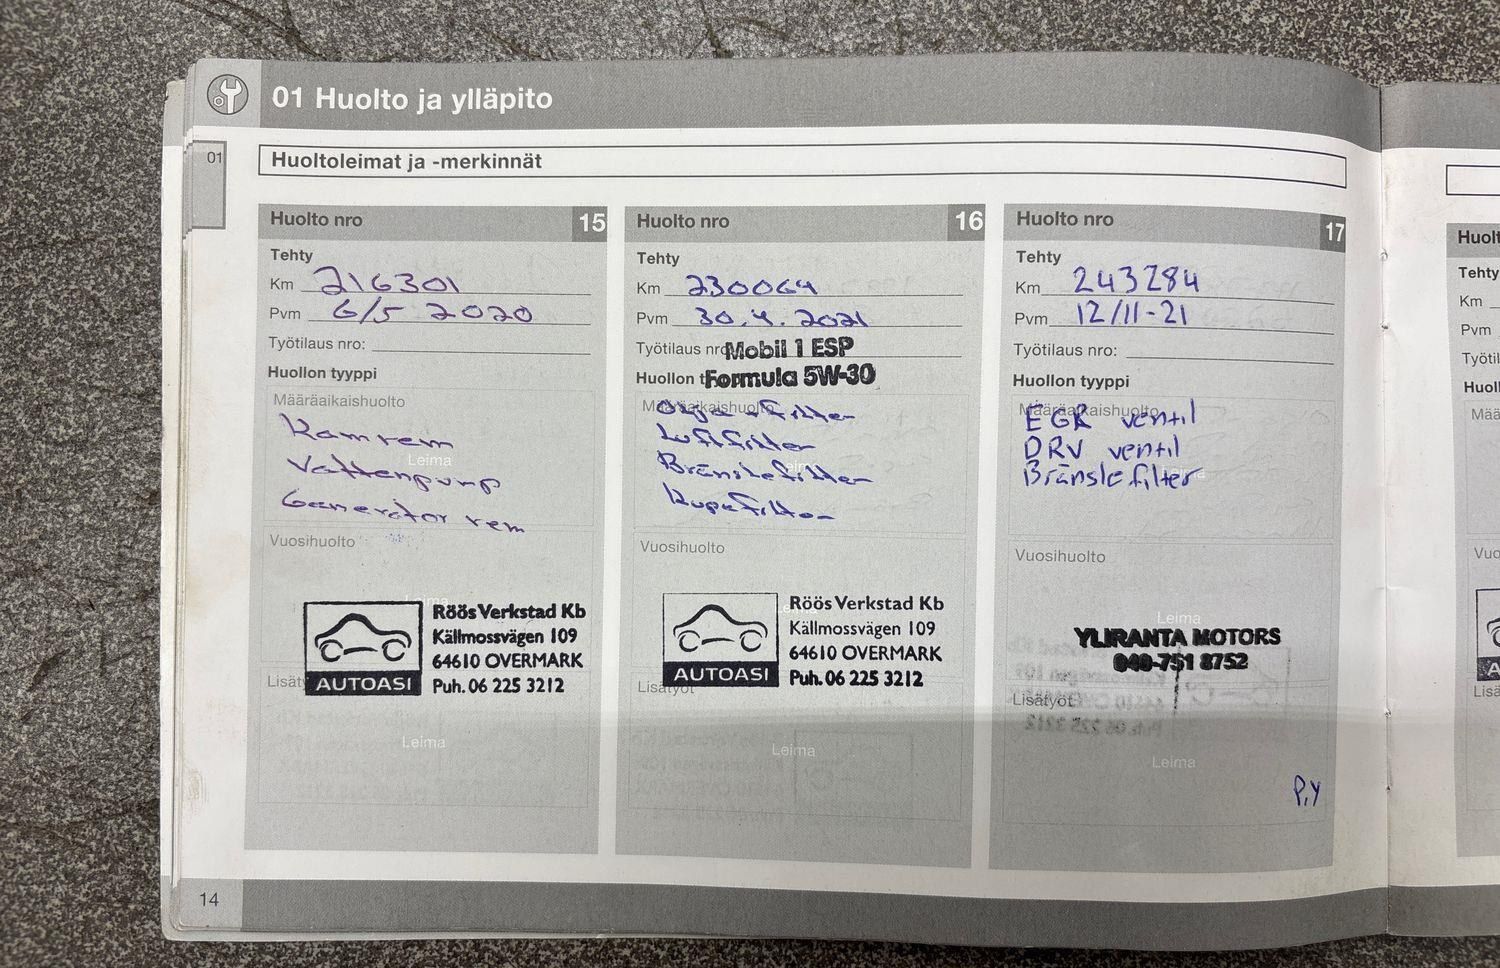 01 Huolto ja ylläpito
01
Huoltoleimat ja -merkinnät
Huolto nro 15
Tehty
Km 216301
Pvm 6/5 2020
Työtilaus nro:
Huollon tyyppi
Määräaikaishuolto
Kamrem
Leima
Vattenpump
Generator rem
Vuosihuolto
Leima
Röös Verkstad Kb
Källmossvägen 109
64610 OVERMARK
Puh. 06 225 3212
AUTOASI
Lisäty
Leima
Huolto nro 16
Tehty
Km 230064
Pvm 30.4.2021
Työtilaus nro
Mobil 1 ESP
Formula 5W-30
Huollon t
Määräaikaishuolto
Olja + filter
Luftfilter
Bränslefilter
Kupefilter
Vuosihuolto
Röös Verkstad Kb
Källmossvägen 109
64610 OVERMARK
Puh. 06 225 3212
AUTOASI
Lisätyöt
Leima
Huolto nro 17
Tehty
Km 243284
Pvm 12/11-21
Työtilaus nro:
Huollon tyyppi
Määräaikaishuolto
EGR ventil
DRV ventil
Bränslefilter
Vuosihuolto
Leima
YLIRANTA MOTORS
040-751 8752
Lisätyöt
Leima
P.Y
14
Huolt
Tehty
Km
Pvm
Työtil
Huoll
Mää
Vuo
Lisä